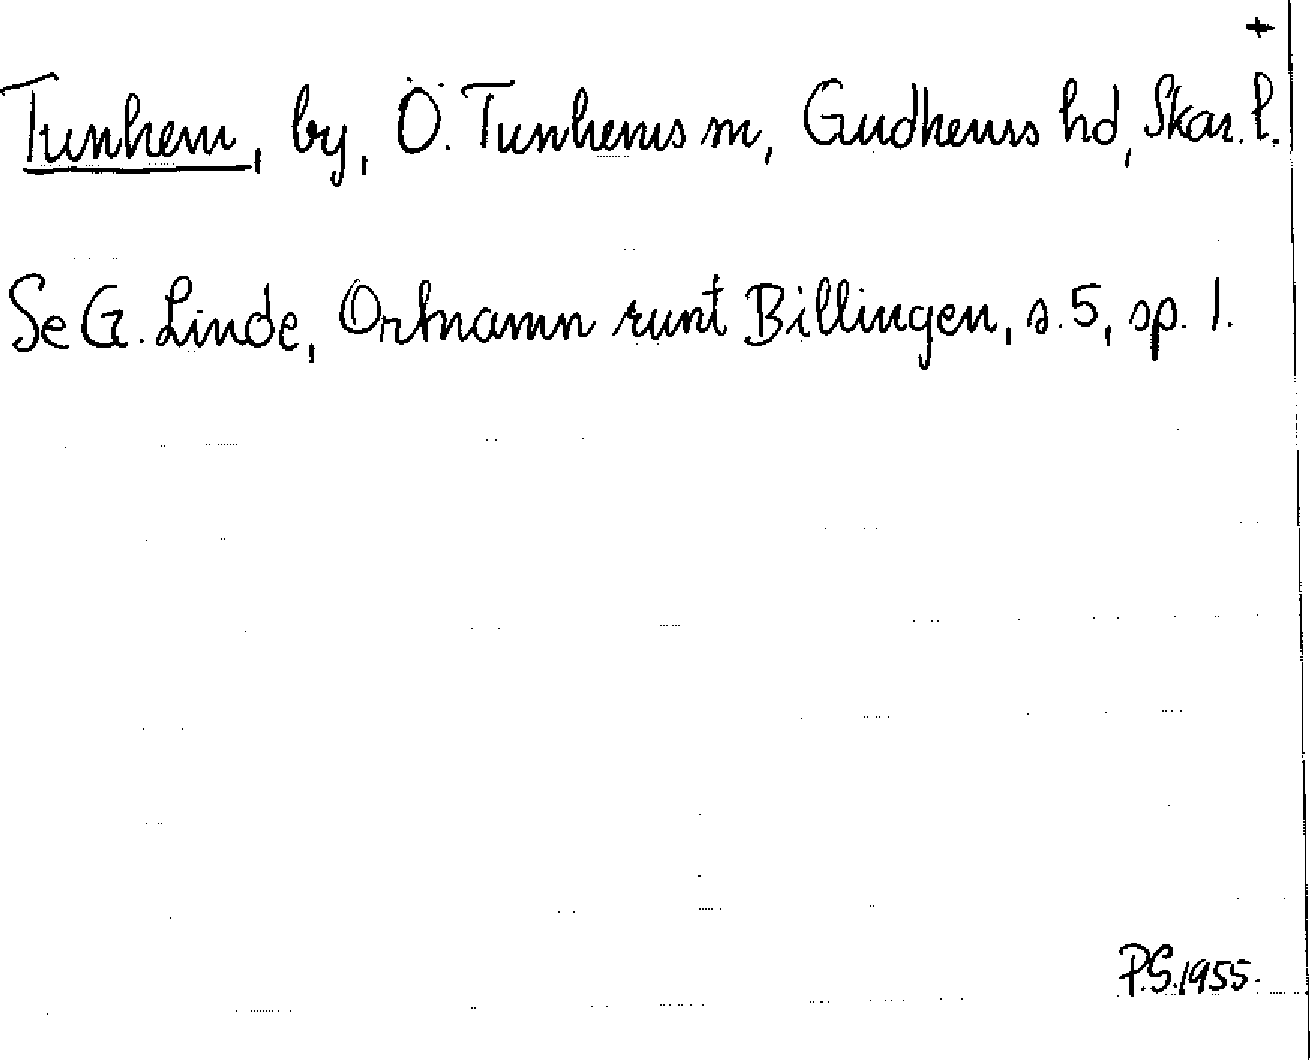 +
Tunhem, by, Ö. Tunhems sn, Gudhems hd, Skar. l.
Se G. Linde, Ortnamn runt Billingen, s. 5, sp. 1.
P.S. 1955.